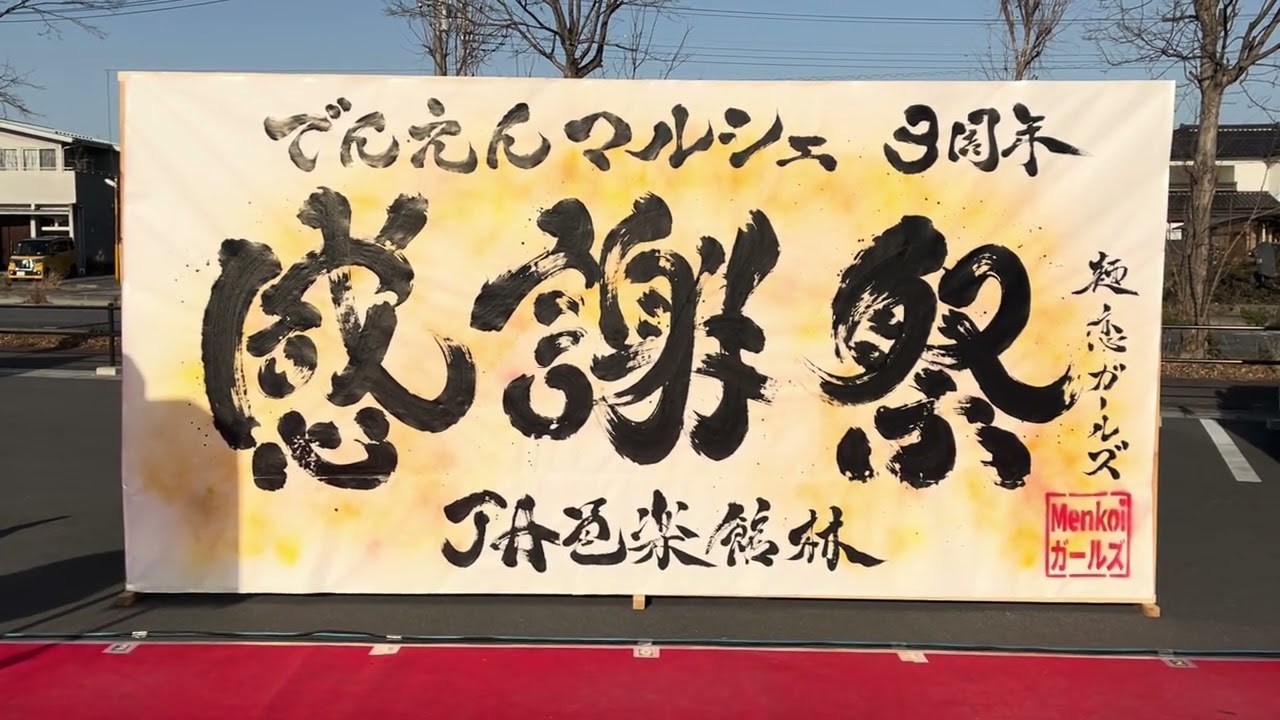 でんえんマルシェ 3周年
感謝祭
麺恋ガールズ
JA邑楽館林
Menkoi
ガールズ